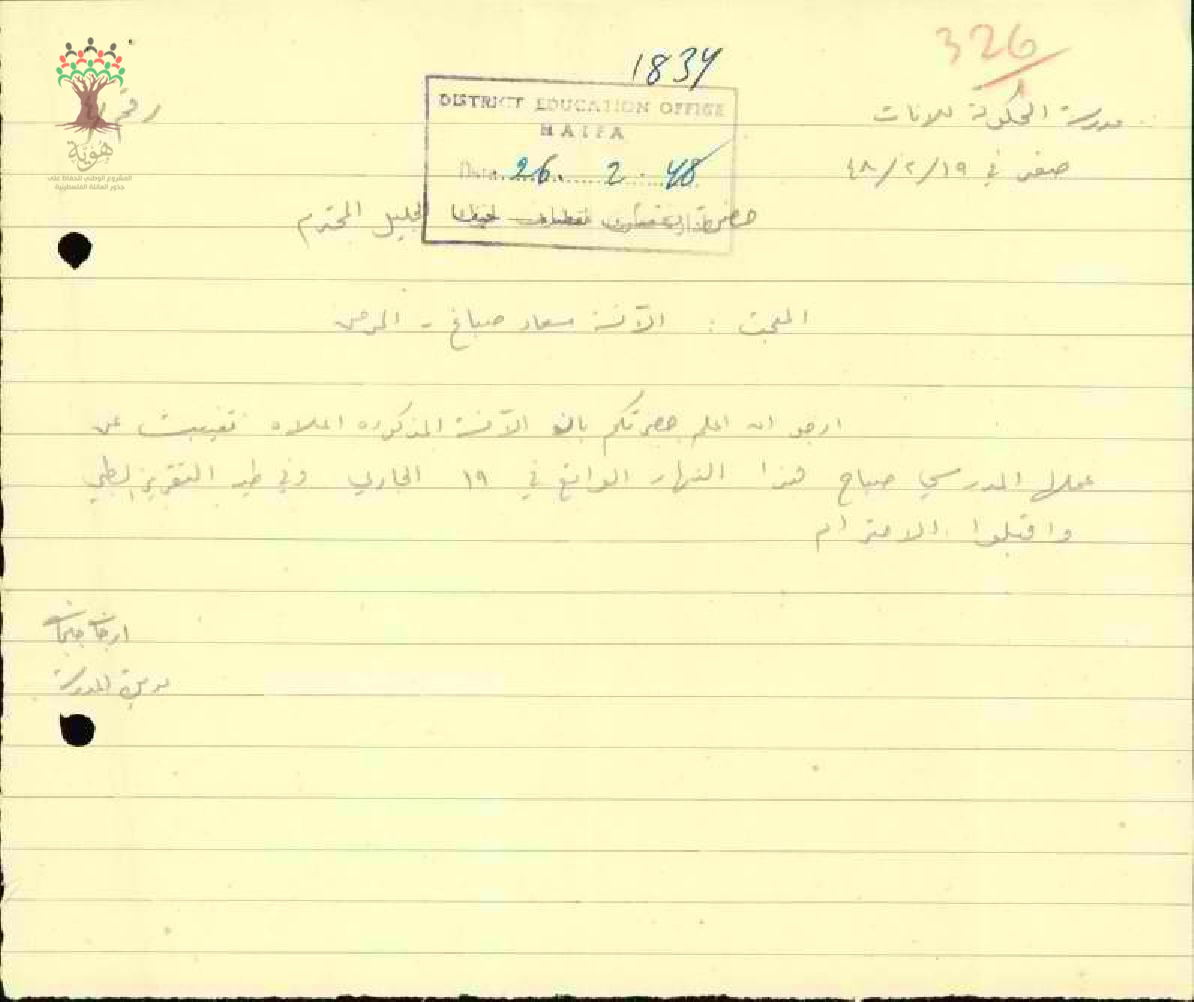 326
1834
مدرسة الحكومة للانات
صفد في ١٩/٢/٤٨
DISTRICT EDUCATION OFFICE
HAIFA
Date 26. 2. 48
هوية
المشروع الوطني للحفاظ على
جذور العائلة الفلسطينية
حضرة الجليل المحترم
المبحث : الآنسة سعاد صباغ - المرض
ارجو ان اعلم حضرتكم بان الآنسة المذكوره اعلاه تغيبت عن
عملها المدرسي صباح هذا النهار الواقع في ١٩ الجاري وفي طيه التقرير الطبي
واقبلوا الاحترام
مديرة المدرسة